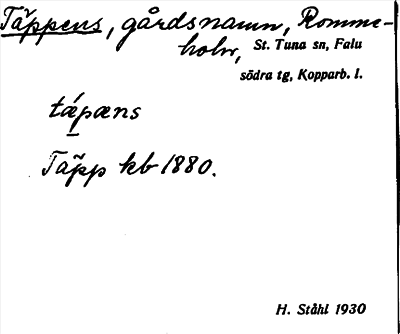 Täppens, gårdsnamn, Romme-
holn, St. Tuna sn, Falu
södra tg, Kopparb. l.
tápæns
Täpp kb 1880.
H. Ståhl 1930